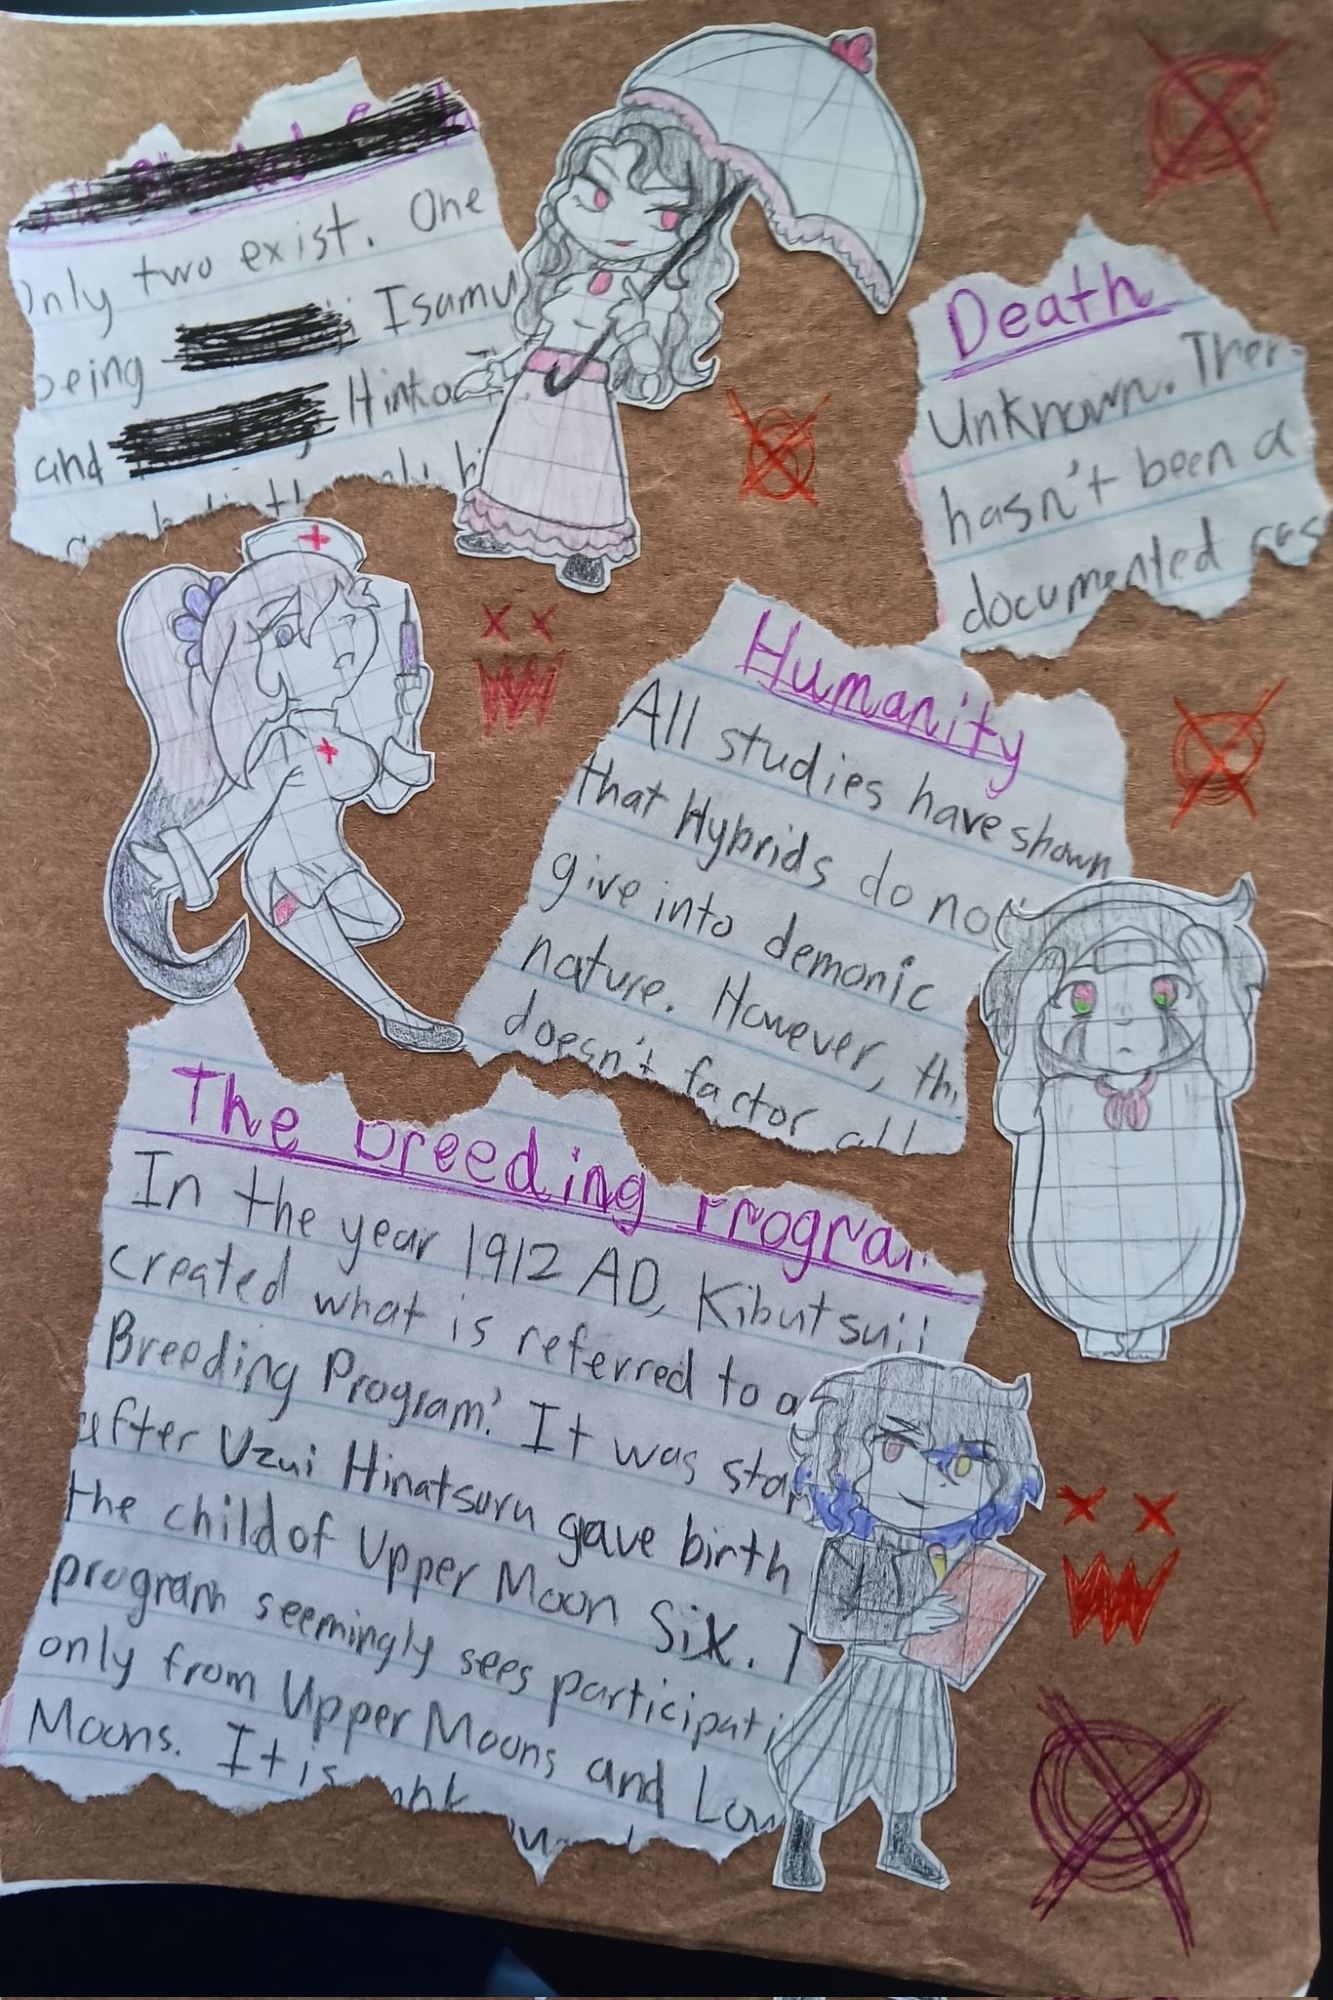 Only two exist. One
being Isamu
and
Death
Unknown. Ther
hasn't been a
documented cas
Humanity
All studies have shown
that Hybrids do not
give into demonic
nature. However, th
doesn't factor all
The Breeding Program
In the year 1912 AD, Kibutsuji
created what is referred to as
Breeding Program.' It was star
after Uzui Hinatsuru gave birth
the child of Upper Moon Six. T
program seemingly sees participati
only from Upper Moons and Low
Moons. It is